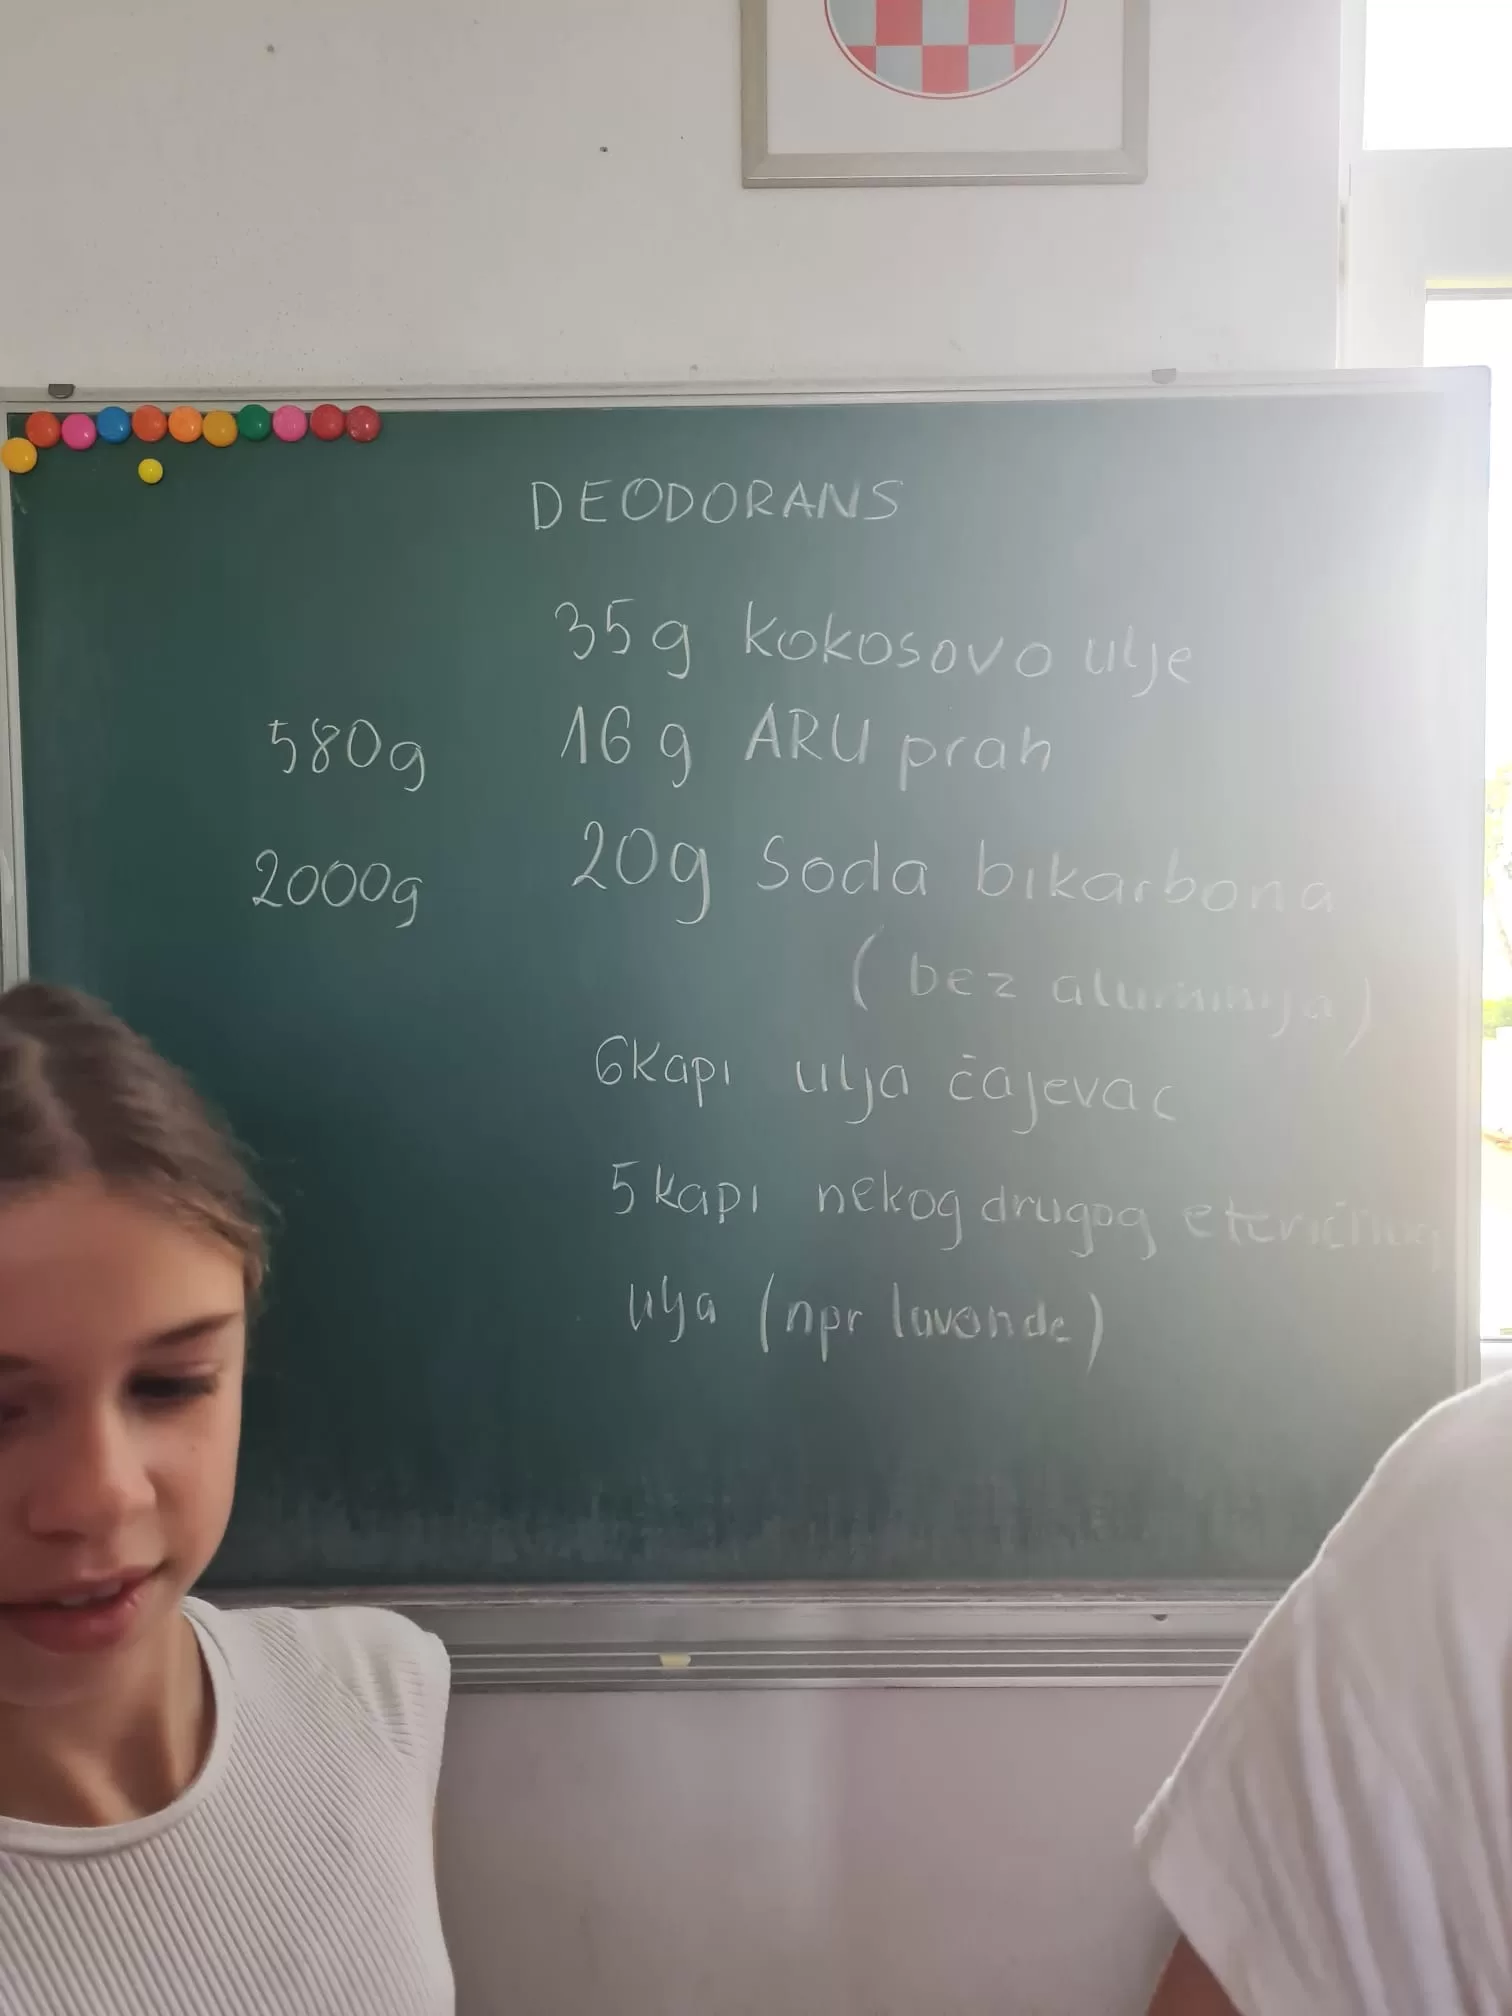 DEODORANS
35g kokosovo ulje
580g 16g ARU prah
2000g 20g Soda bikarbona
(bez aluminija)
6kapi ulja čajevac
5kapi nekog drugog eteričnog
ulja (npr lavande)